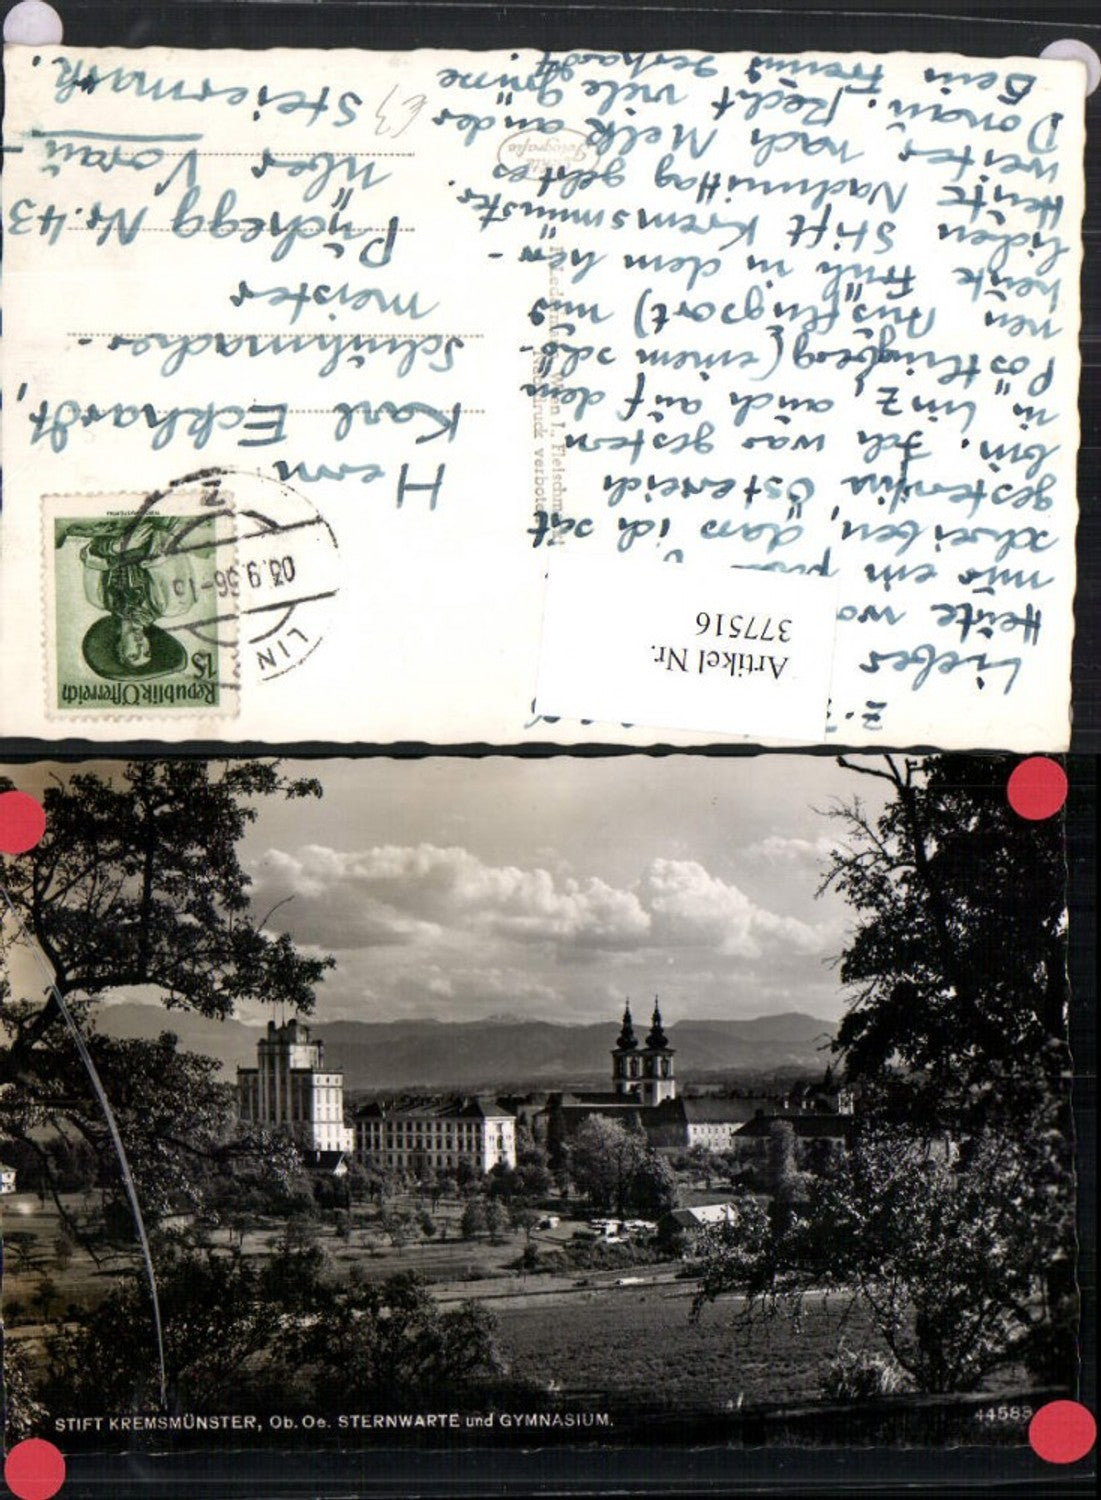 Lieber
Heute
mir ein
schreiben, dass ich seit
gestern in Österreich
bin. Ich war gestern
in Linz, auch auf dem
Pöstlingberg (einem schö-
nen Ausflugsort) und
heute früh in dem herr-
lichen Stift Kremsmünster.
Heute Nachmittag geht es
weiter nach Melk an der
Donau. Recht viele Grüsse
Dein Freund Gerhardt
Herrn
Karl Eckhardt,
Schuhmacher-
meister
Pichegg Nr. 43
über Vorau
Steiermark.
Republik Österreich
1S
LIN
03.9.56-18
Wien I., Fleischmarkt
Nachdruck verboten
Echte
Fotografie
Artikel Nr.
377516
STIFT KREMSMÜNSTER, Ob. Oe. STERNWARTE und GYMNASIUM.
44583